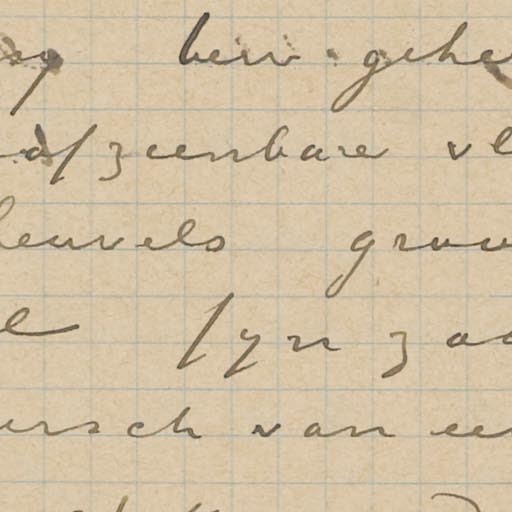 ben gehe
afzienbare vl
heuvels grau
e fyn zac
ersch van ee